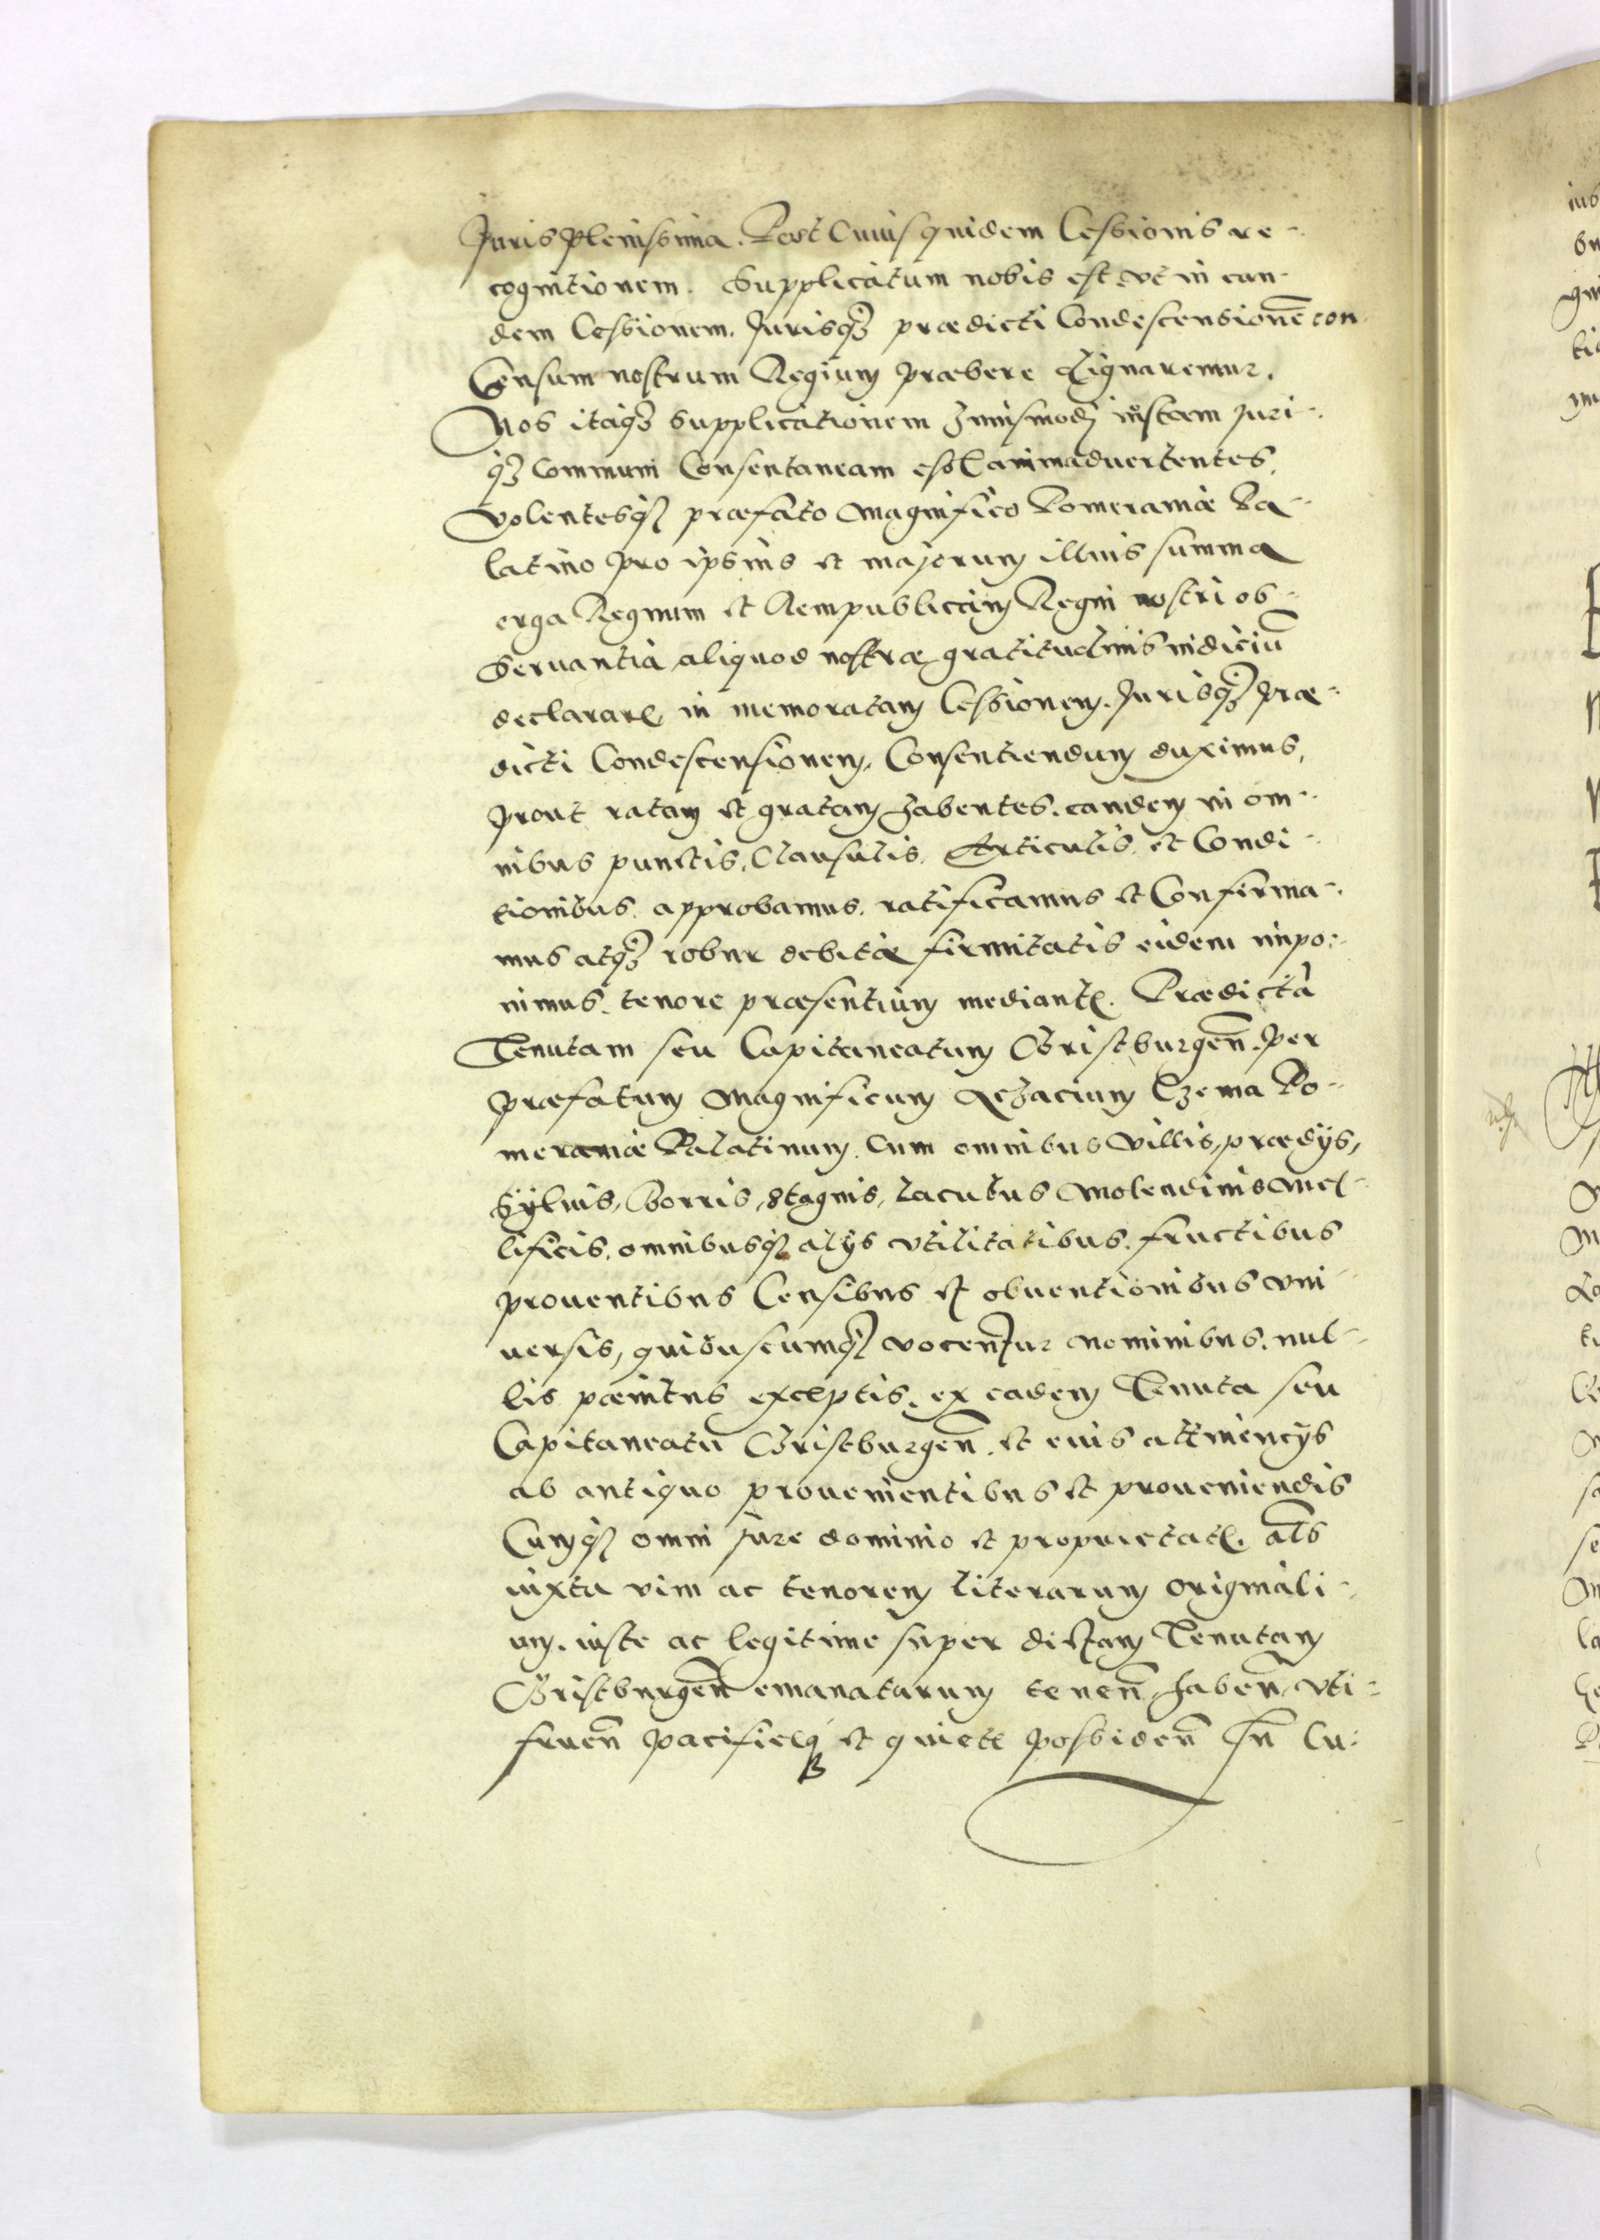 Juris plenissima. Post Cuius quidem Cessionis re-
cognitionem. Supplicatum nobis est vt in ean-
dem Cessionem. Jurisq3 prædicti Condescensionē con
Sensum nostrum Regium præbere dignaremur.
Nos itaq3 supplicationem huiusmodj iustam juri-
q3 communi Consentaneam esse animaduertentes,
Volentesq3 præfato Magnifico Pomeraniæ Pa-
latino pro ipsius et majorum illius summa
erga Regnum et Rempublicam Regni nostri ob-
seruantia aliquod nostræ gratitudinis indiciū
declarare, in memoratam Cessionem. Jurisq3 præ-
dicti Condescensionem, Consentiendum duximus,
prout ratam et gratam habentes. eandem in om-
nibus punctis, Clausulis, Articulis, et Condi-
tionibus. approbamus. ratificamus et Confirma-
mus atq3 robur debitæ firmitatis eidem impo-
nimus. tenore præsentium mediante. Prædictā
Tenutam seu Capitaneatum Cristburgeñ. per
præfatum Magnificum Achacium Czema Po-
meraniæ Palatinum. cum omnibus villis, prædijs,
Syluis, Borris, stagnis, lacubus Molendinis Mel-
lificis, omnibusq3 alijs vtilitatibus. fructibus
prouentibus Censibus et obuentionibus vni-
uersis, quibuscumq3 vocentur nominibus. nul-
lis pænitus exceptis. ex eadem Tenuta seu
Capitaneatu Cristburgeñ. et eius attinencijs
ab antiquo prouenientibus et proueniendis
Cumq3 omni jure dominio et proprietate. als
iuxta vim ac tenorem literarum originali-
um. iuste ac legitime super dictam Tenutam
Cristburgeñ emanatarum teneñ habeñ vti-
frueñ pacificeq3 et quiete possideñ Iñ Cu-